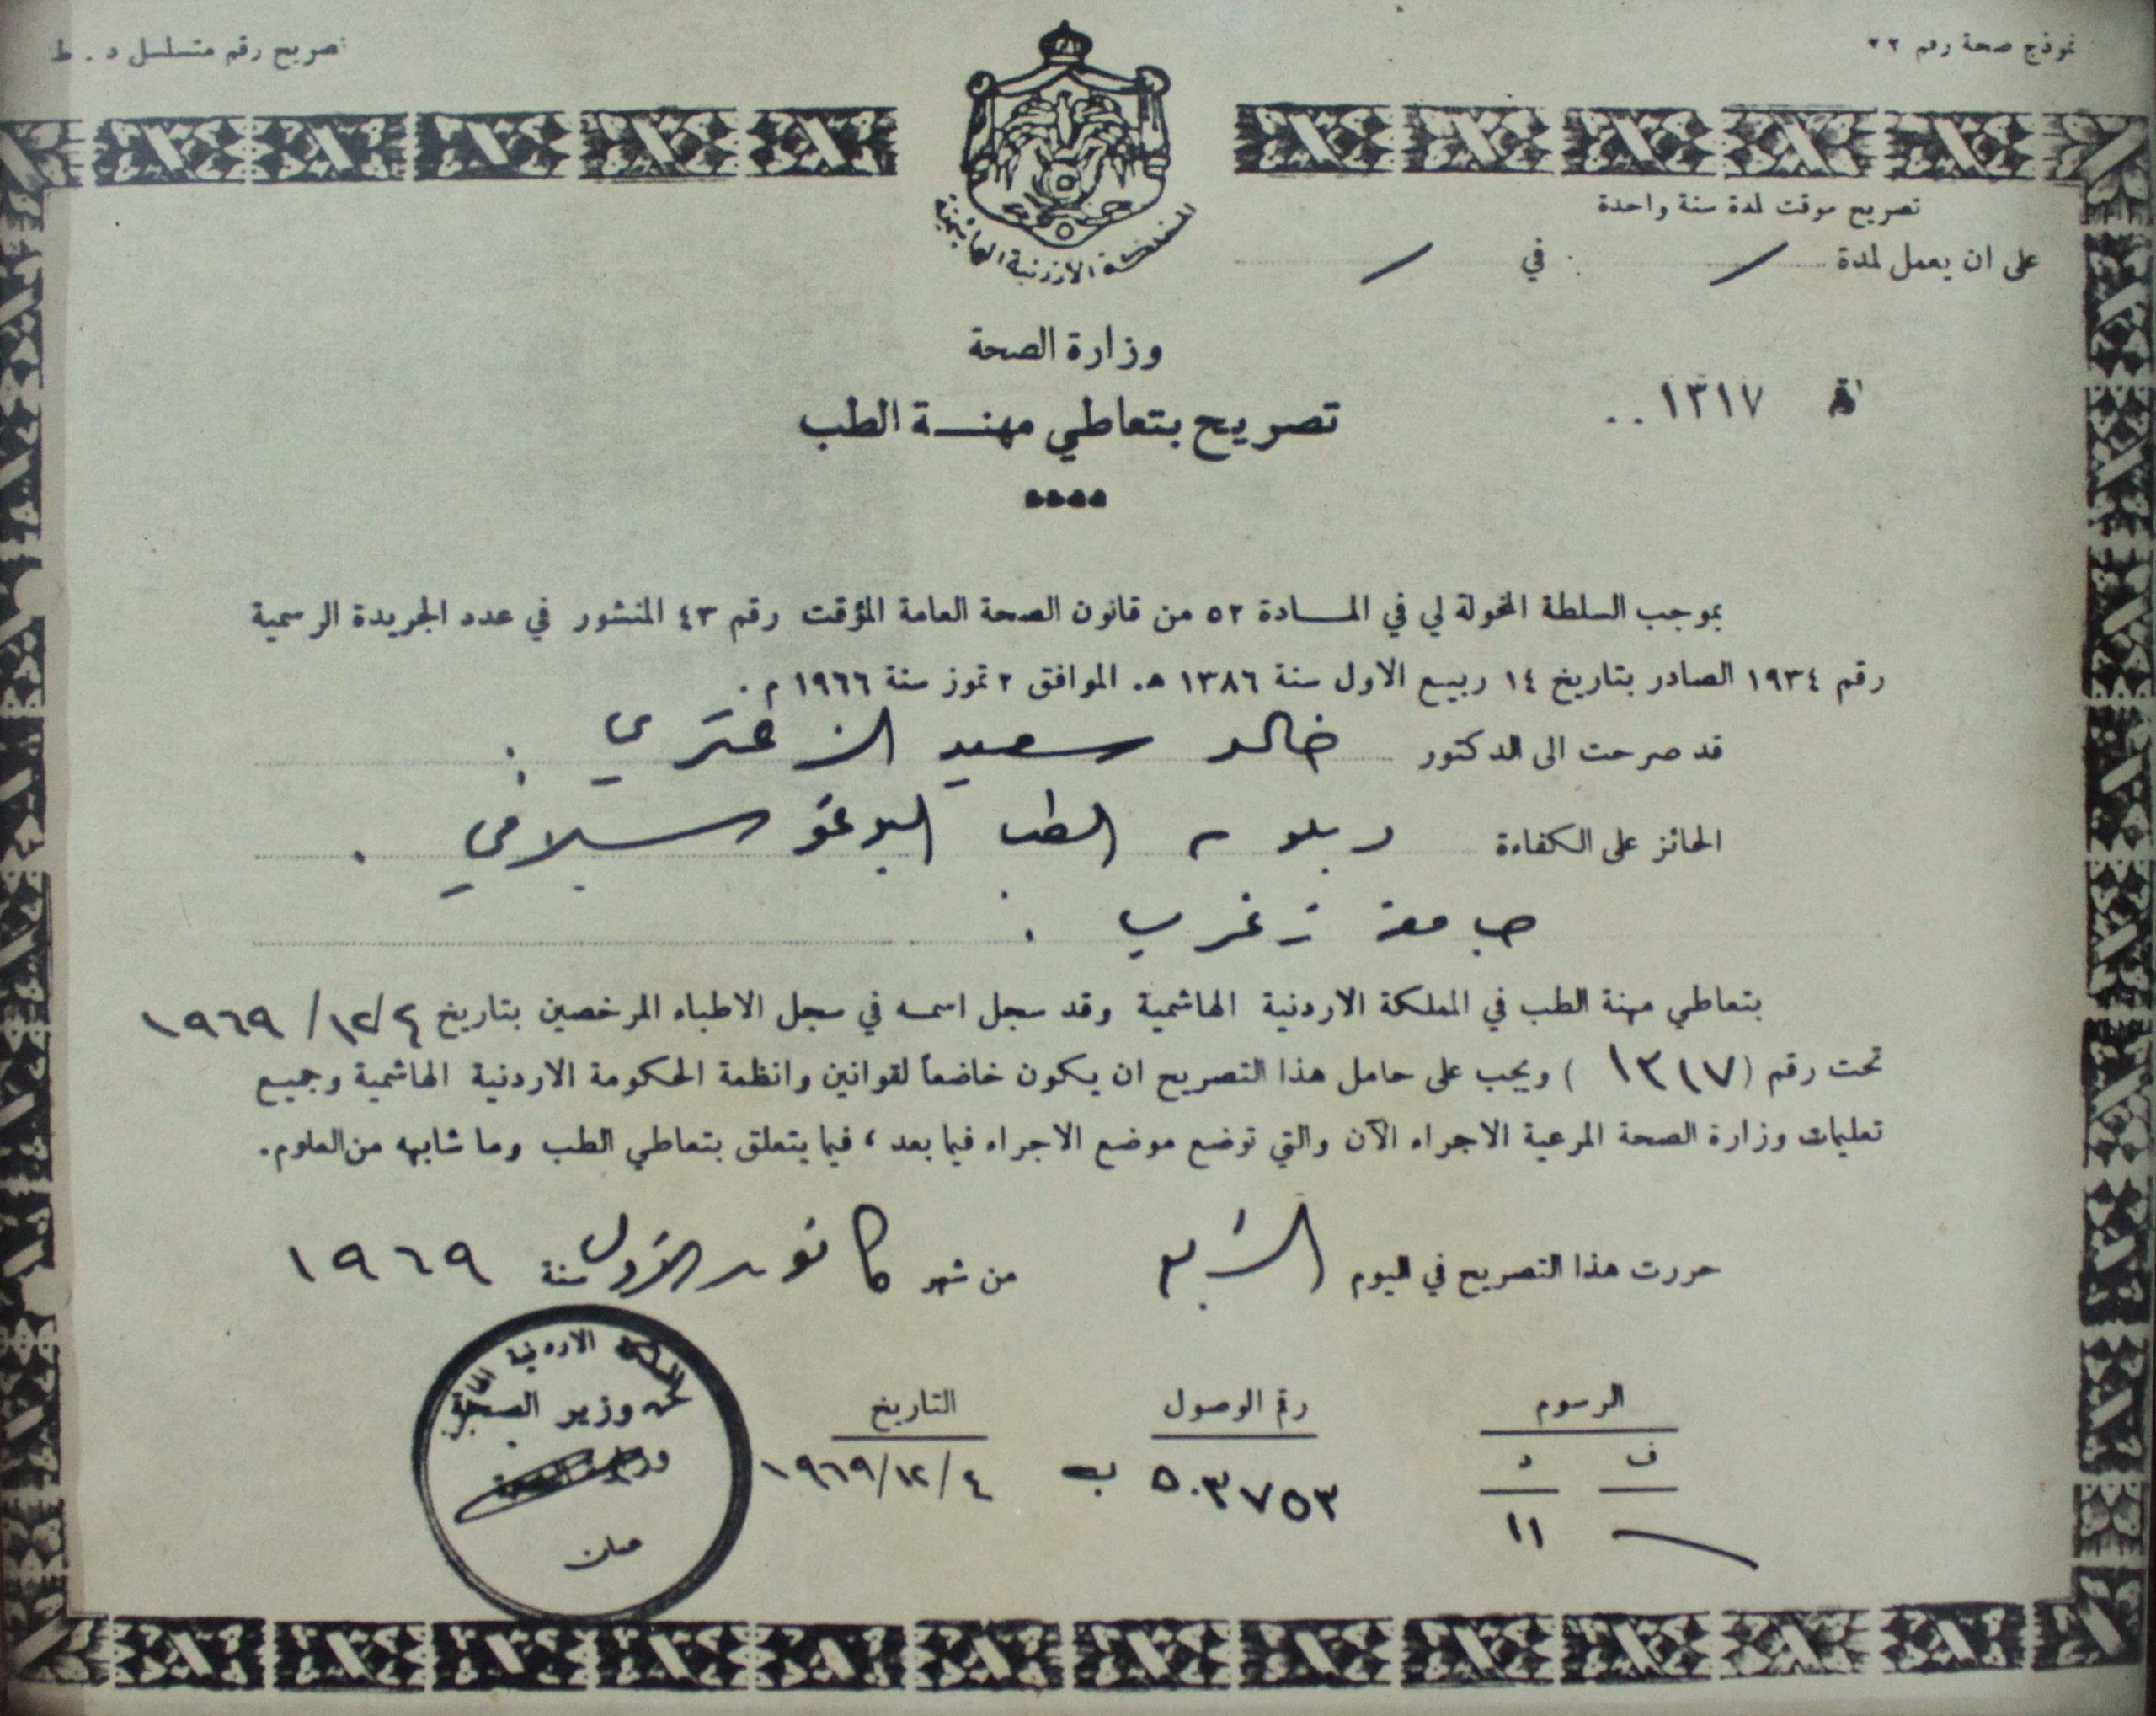 نموذج صحة رقم ٢٢
تصريح رقم متسلسل د. ط
المملكة الاردنية الهاشمية
تصريح موقت لمدة سنة واحدة
على ان يعمل لمدة / في /
وزارة الصحة
١٣١٧..
تصريح بتعاطي مهنـــة الطب
بموجب السلطة المخولة لي في المـــادة ٥٢ من قانون الصحة العامة المؤقت رقم ٤٣ المنشور في عدد الجريدة الرسمية
رقم ١٩٣٤ الصادر بتاريخ ١٤ ربيع الاول سنة ١٣٨٦ هـ. الموافق ٢ تموز سنة ١٩٦٦ م.
قد صرحت الى الدكتور خالد سعيد الزعتري.
الحائز على الكفاءة دبلوم الطب اليوغوسلافي.
جامعة زغرب.
بتعاطي مهنة الطب في المملكة الاردنية الهاشمية وقد سجل اسمه في سجل الاطباء المرخصين بتاريخ ٤/١٢/١٩٦٩
تحت رقم (١٣١٧) ويجب على حامل هذا التصريح ان يكون خاضعاً لقوانين وانظمة الحكومة الاردنية الهاشمية وجميع
تعليمات وزارة الصحة المرعية الاجراء الآن والتي توضع موضع الاجراء فيما بعد، فيما يتعلق بتعاطي الطب وما شابهه من العلوم.
حررت هذا التصريح في اليوم الرابع من شهر كانون الاول سنة ١٩٦٩
الرسوم رقم الوصول التاريخ
ف د
١١ ٥٠٣٧٥٣ ب ٤/١٢/١٩٦٩
المملكة الاردنية الهاشمية
وزير الصحة
وزارة الصحة
عمان